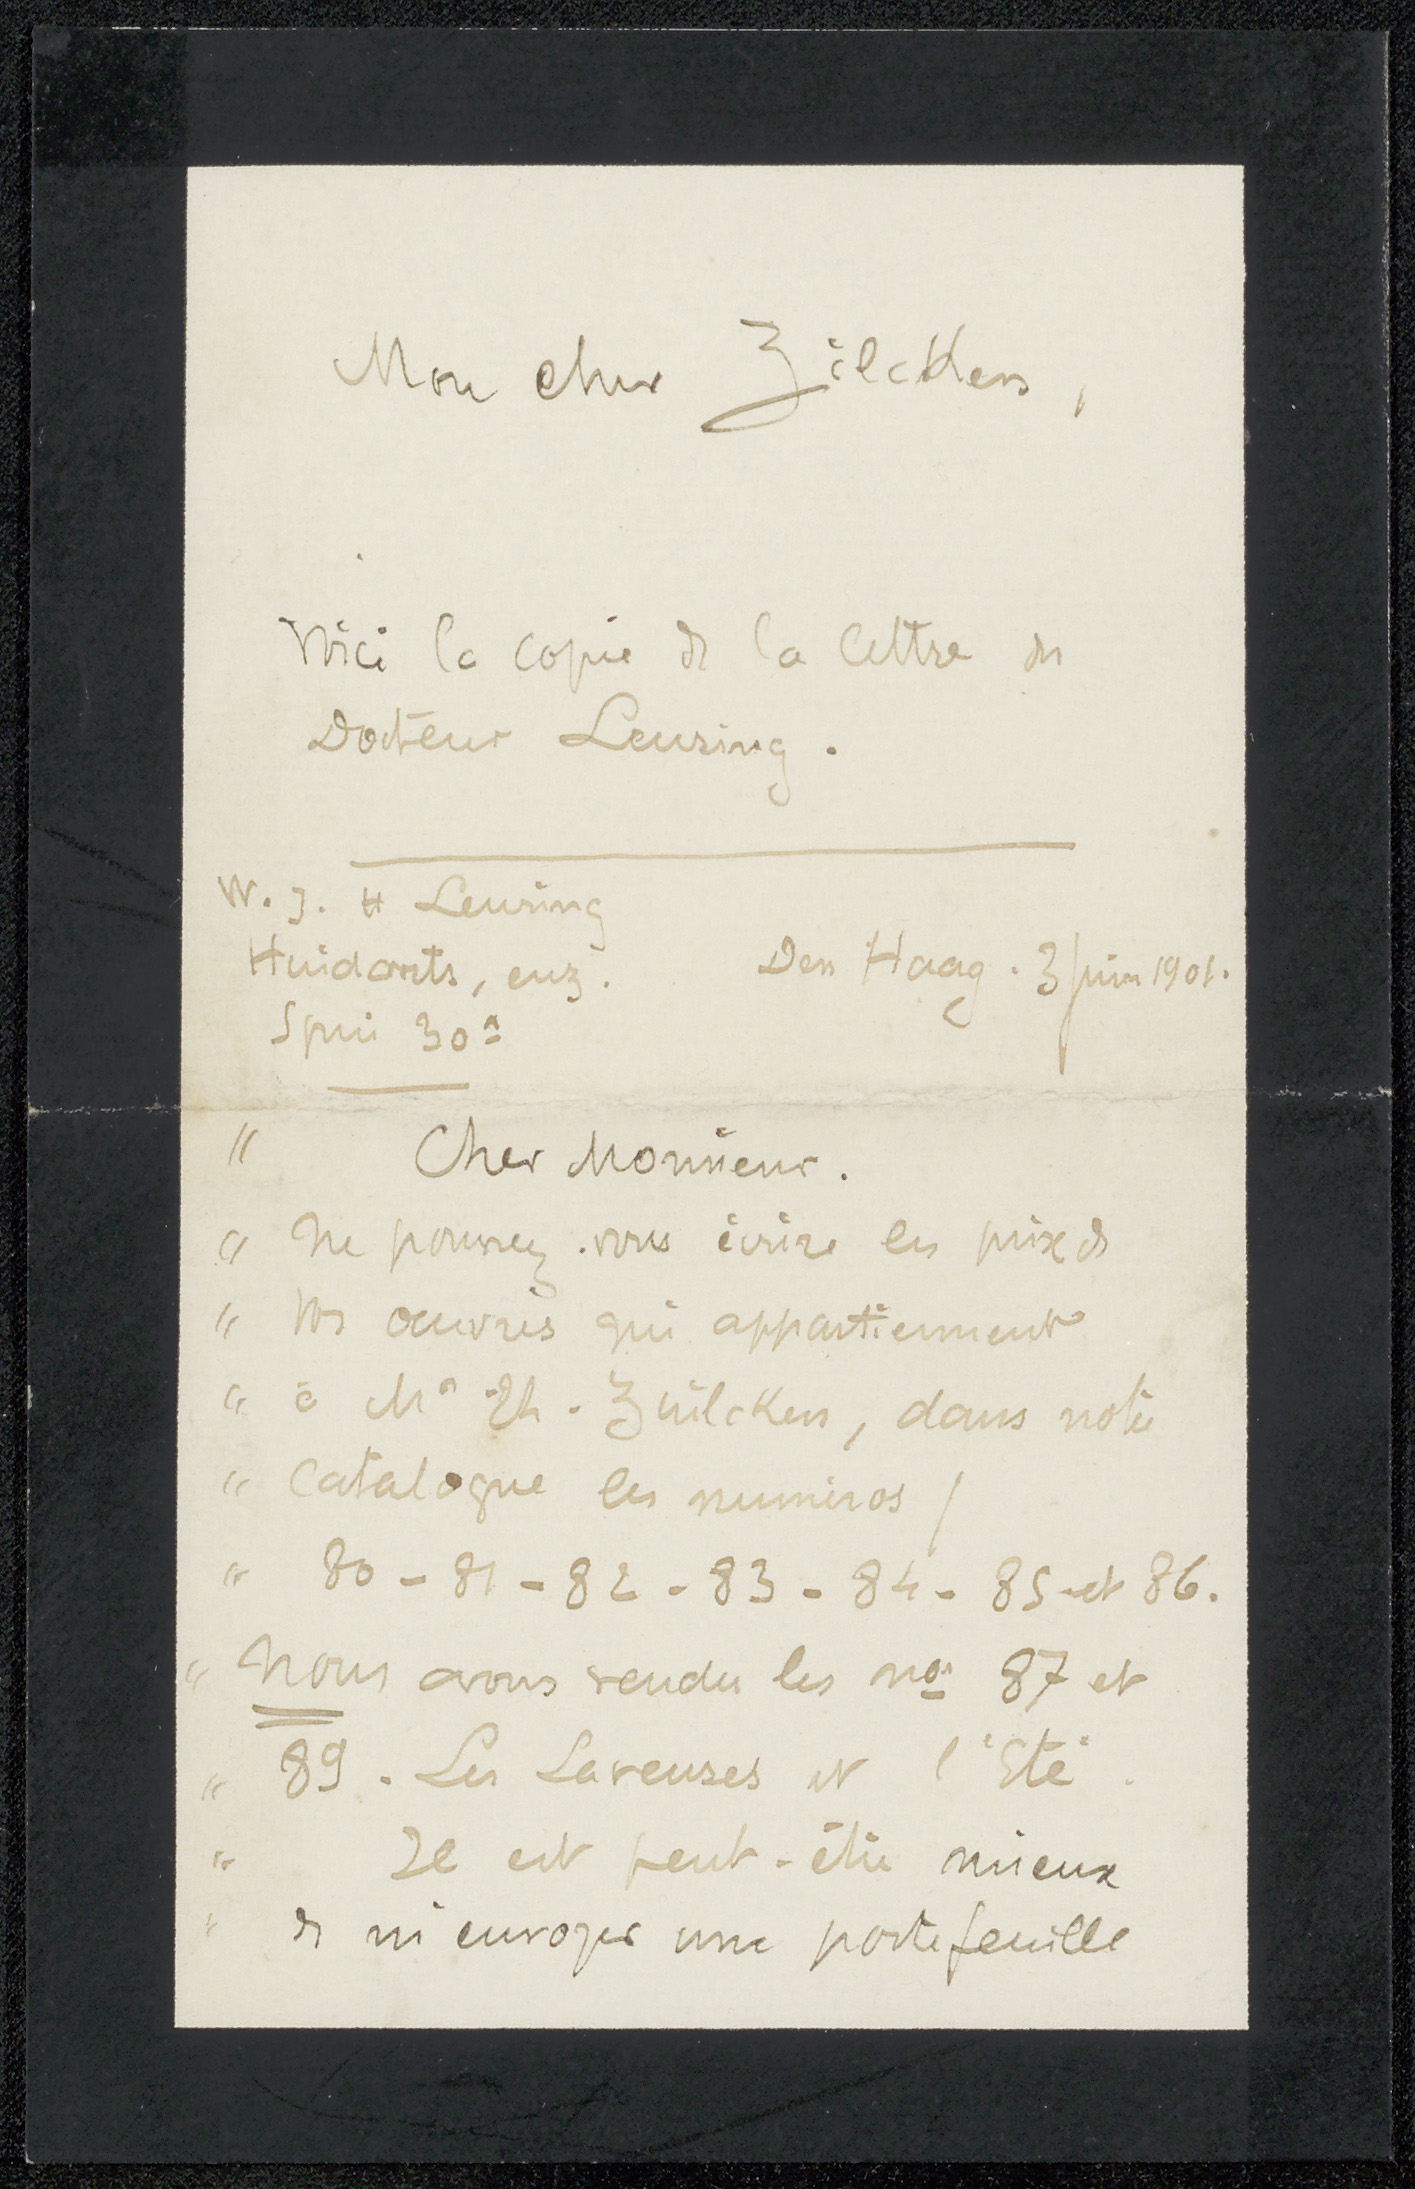 Mon cher Zilcken,
Voici la copie de la lettre du
Docteur Leuring.
W. J. H Leuring
Huidarts, enz.
Den Haag. 3 Juin 1901.
Spui 30a
" Cher Monsieur.
" Ne pouvez-vous écrire les prix de
" vos œuvres qui appartiennent
" à Mr Ph. Zuilcken, dans notre
" Catalogue les numéros /
" 80 - 81 - 82 - 83 - 84 - 85 et 86.
" Nous avons vendu les nos 87 et
" 89. Les Laveuses et l'Eté.
" Il est peut-être mieux
" de m'envoyer une portefeuille